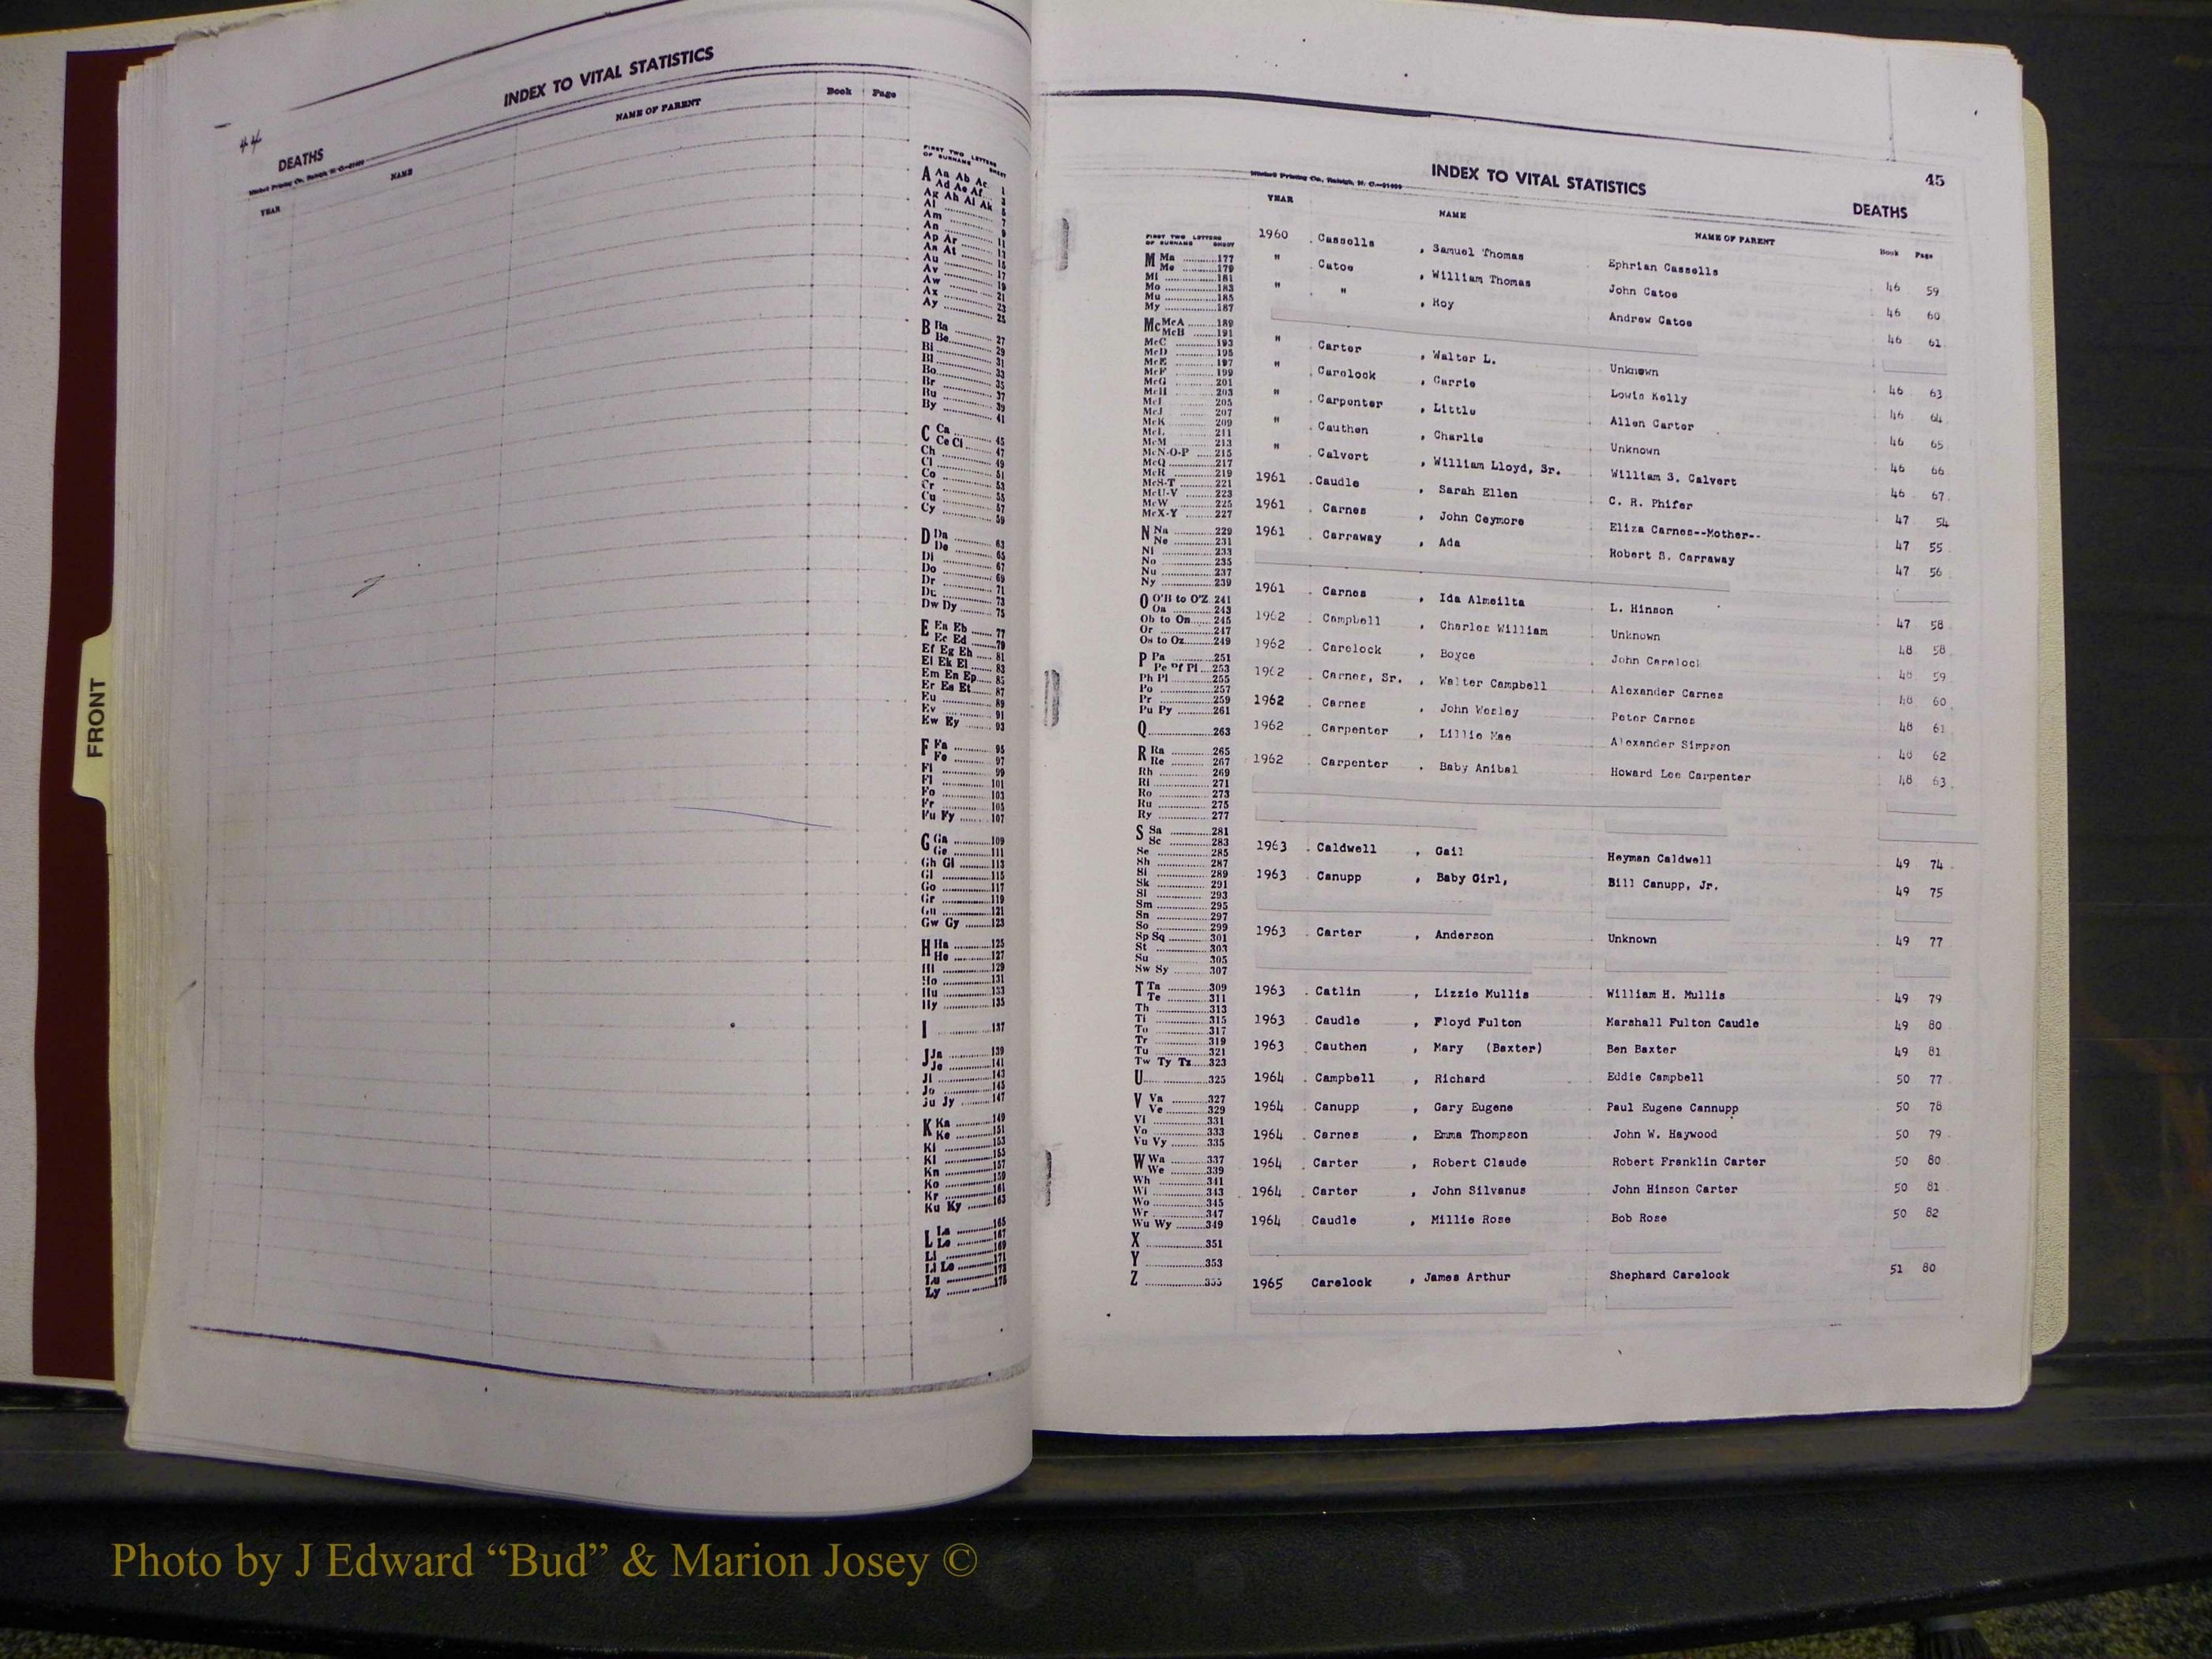 INDEX TO VITAL STATISTICS
44
DEATHS
YEAR NAME NAME OF PARENT Book Page
FIRST TWO LETTERS
OF SURNAME SHEET
A Aa Ab Ac 1
Ad Ae Af 3
Ag Ah Ai Ak 5
Al 7
Am 9
An 11
Ap Ar 13
As At 15
Au 17
Av 19
Aw 21
Ax 23
Ay 25
B Ba 27
Be 29
Bi 31
Bl 33
Bo 35
Br 37
Bu 39
By 41
C Ca 45
Ce Ci 47
Ch 49
Cl 51
Co 53
Cr 55
Cu 57
Cy 59
D Da 63
De 65
Di 67
Do 69
Dr 71
Du 73
Dw Dy 75
E Ea Eb 77
Ec Ed 79
Ef Eg Eh 81
Ei Ek El 83
Em En Ep 85
Er Es Et 87
Eu 89
Ev 91
Ew Ey 93
F Fa 95
Fe 97
Fi 99
Fl 101
Fo 103
Fr 105
Fu Fy 107
G Ga 109
Ge 111
Gh Gi 113
Gl 115
Go 117
Gr 119
Gu 121
Gw Gy 123
H Ha 125
He 127
Hi 129
Ho 131
Hu 133
Hy 135
I 137
J Ja 139
Je 141
Ji 143
Jo 145
Ju Jy 147
K Ka 149
Ke 151
Ki 153
Kl 155
Kn 157
Ko 159
Kr 161
Ku Ky 163
L La 165
Le 167
Li 169
Ll Lo 171
Lu 173
Ly 175
FRONT
45
INDEX TO VITAL STATISTICS
DEATHS
Mitchell Printing Co., Raleigh, N. C.
YEAR NAME NAME OF PARENT Book Page
FIRST TWO LETTERS
OF SURNAME SHEET
M Ma 177
Me 179
Mi 181
Mo 183
Mu 185
My 187
Mc McA 189
McB 191
McC 193
McD 195
McE 197
McF 199
McG 201
McH 203
McI 205
McJ 207
McK 209
McL 211
McM 213
McN-O-P 215
McQ 217
McR 219
McS-T 221
McU-V 223
McW 225
McX-Y 227
N Na 229
Ne 231
Ni 233
No 235
Nu 237
Ny 239
O O'B to O'Z 241
Oa 243
Ob to On 245
Or 247
Os to Oz 249
P Pa 251
Pe Pf Pl 253
Ph Pi 255
Po 257
Pr 259
Pu Py 261
Q 263
R Ra 265
Re 267
Rh 269
Ri 271
Ro 273
Ru 275
Ry 277
S Sa 281
Sc 283
Se 285
Sh 287
Si 289
Sk 291
Sl 293
Sm 295
Sn 297
So 299
Sp Sq 301
St 303
Su 305
Sw Sy 307
T Ta 309
Te 311
Th 313
Ti 315
To 317
Tr 319
Tu 321
Tw Ty Tz 323
U 325
V Va 327
Ve 329
Vi 331
Vo 333
Vu Vy 335
W Wa 337
We 339
Wh 341
Wi 343
Wo 345
Wr 347
Wu Wy 349
X 351
Y 353
Z 355
1960 Cassells , Samuel Thomas Ephrian Cassells 46 59
" Catoe , William Thomas John Catoe 46 60
" " , Hoy Andrew Catoe 46 61
" Carter , Walter L. Unknown 46 63
" Carelock , Carrie Lowis Kelly 46 64
" Carpenter , Little Allen Carter 46 65
" Cauthen , Charlie Unknown 46 66
" Calvert , William Lloyd, Sr. William S. Calvert 46 67
1961 Caudle , Sarah Ellen C. R. Phifer 47 54
1961 Carnes , John Ceymore Eliza Carnes--Mother-- 47 55
1961 Carraway , Ada Robert S. Carraway 47 56
1961 Carnes , Ida Almeilta L. Hinson 47 58
1962 Campbell , Charles William Unknown 48 58
1962 Carelock , Boyce John Carelock 48 59
1962 Carnes, Sr. , Walter Campbell Alexander Carnes 48 60
1962 Carnes , John Wesley Peter Carnes 48 61
1962 Carpenter , Lillie Mae Alexander Simpson 48 62
1962 Carpenter , Baby Anibal Howard Lee Carpenter 48 63
1963 Caldwell , Gail Heyman Caldwell 49 74
1963 Canupp , Baby Girl, Bill Canupp, Jr. 49 75
1963 Carter , Anderson Unknown 49 77
1963 Catlin , Lizzie Mullis William H. Mullis 49 79
1963 Caudle , Floyd Fulton Marshall Fulton Caudle 49 80
1963 Cauthen , Mary (Baxter) Ben Baxter 49 81
1964 Campbell , Richard Eddie Campbell 50 77
1964 Canupp , Gary Eugene Paul Eugene Cannupp 50 78
1964 Carnes , Emma Thompson John W. Haywood 50 79
1964 Carter , Robert Claude Robert Franklin Carter 50 80
1964 Carter , John Silvanus John Hinson Carter 50 81
1964 Caudle , Millie Rose Bob Rose 50 82
1965 Carelock , James Arthur Shephard Carelock 51 80
Photo by J Edward “Bud” & Marion Josey ©